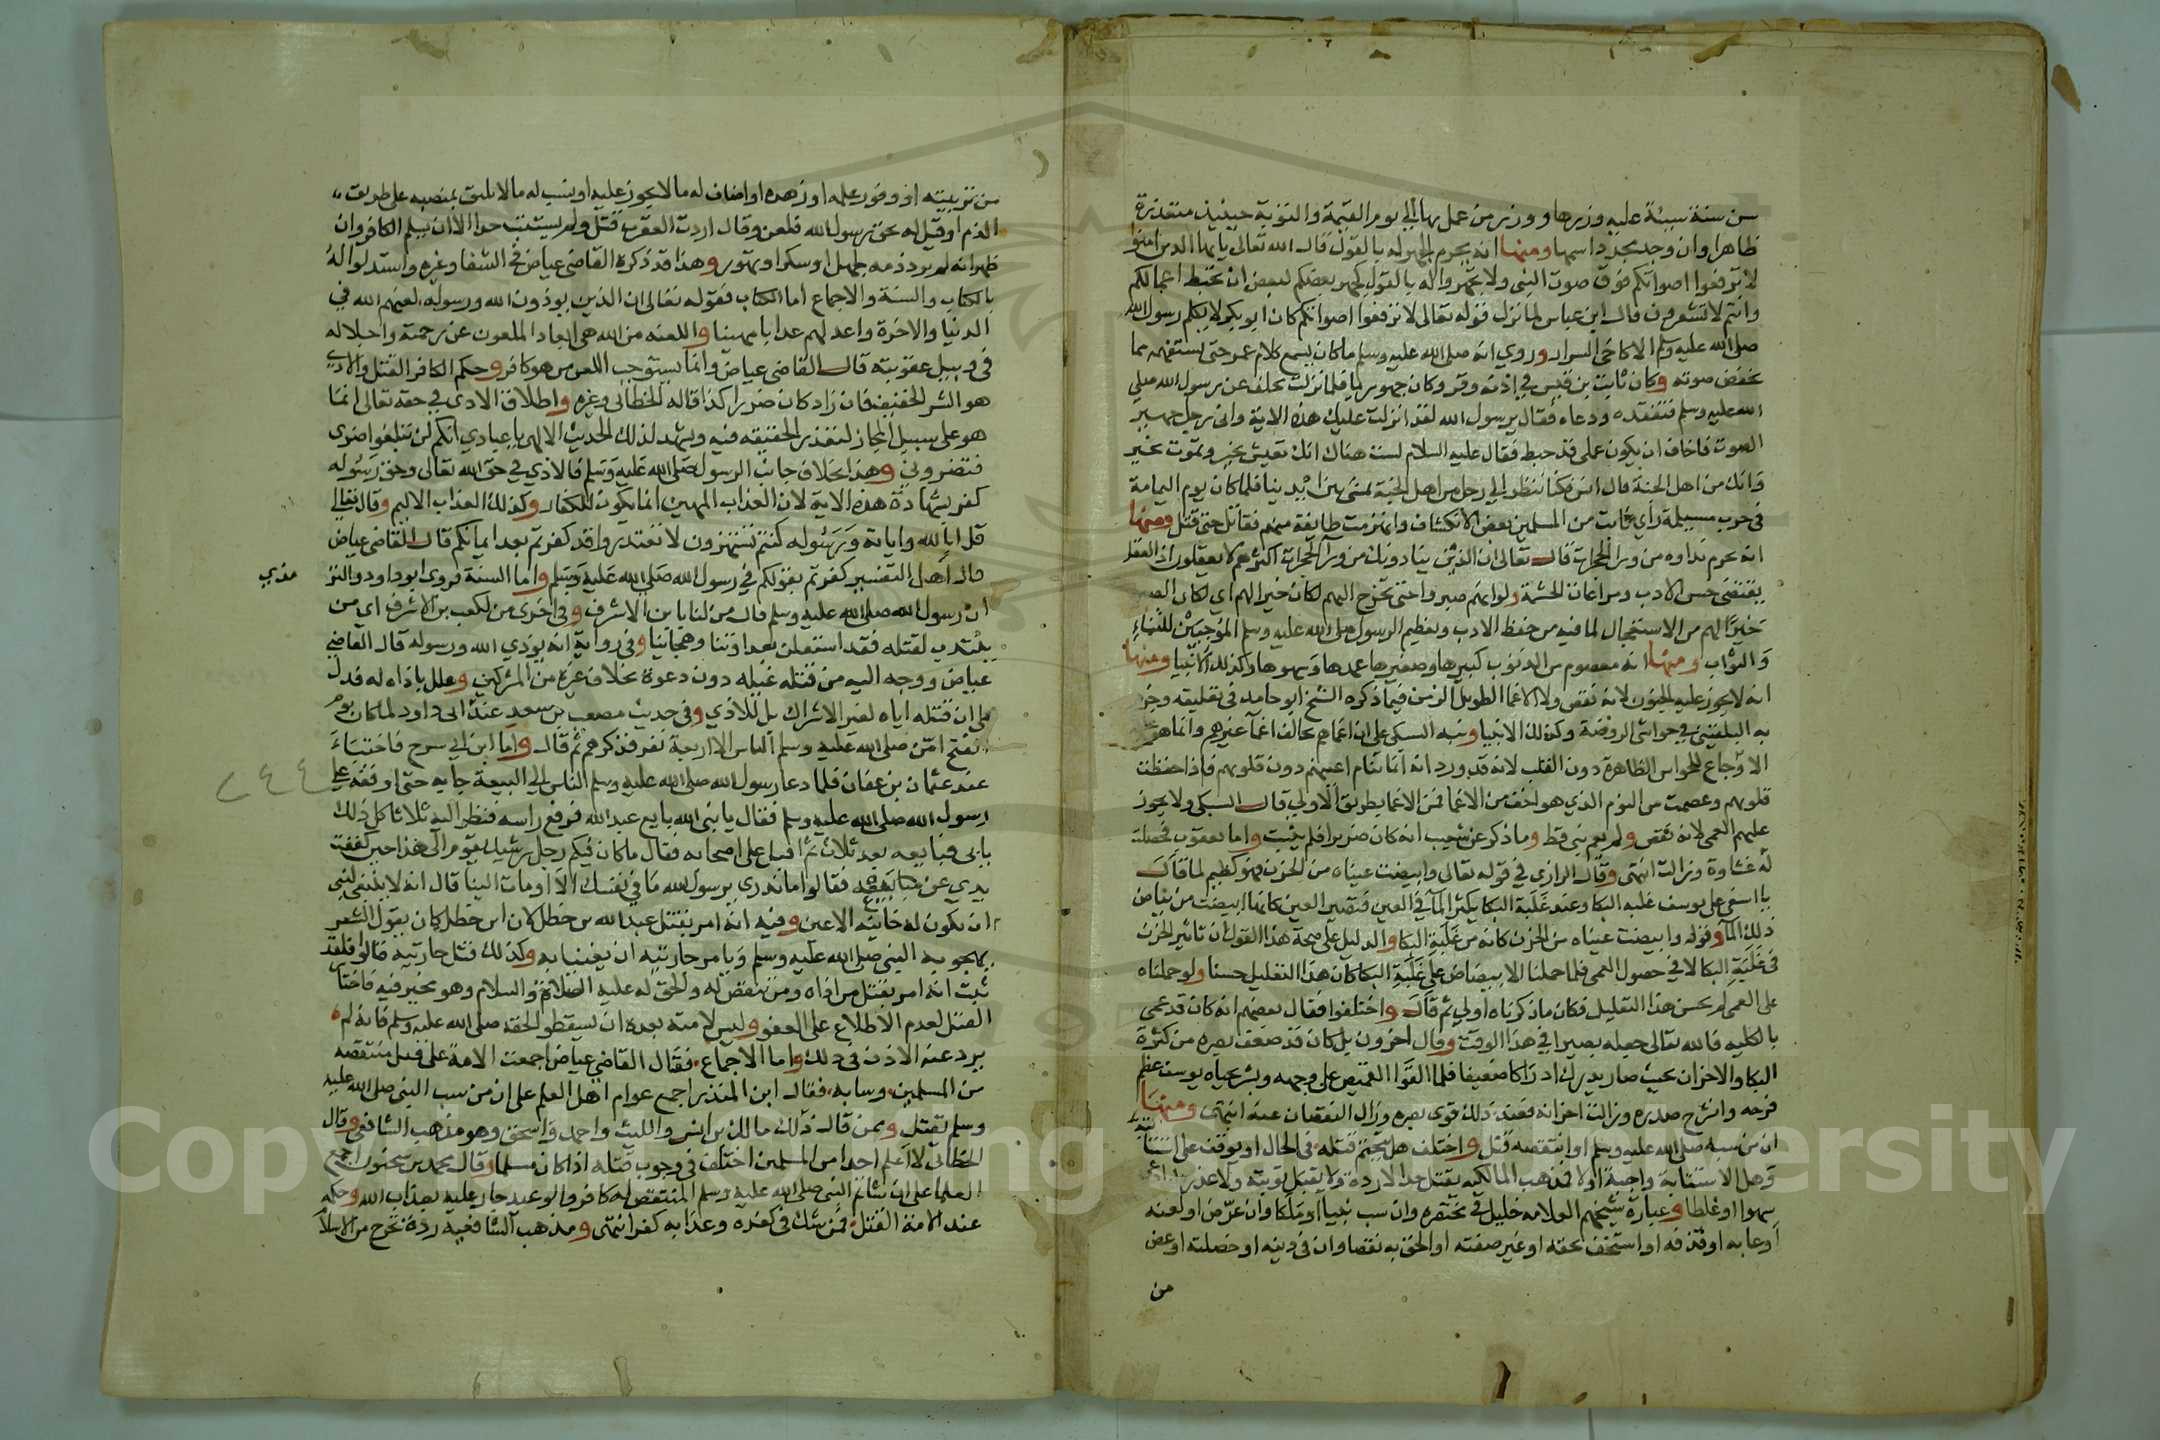 سن سنة سيئة عليه وزرها ووزر من عمل بها الي يوم القيمة والتوبة حينيذ متعذرة
ظاهرا وان وجد مجرد اسمها ومنها انه يحرم الجهر له بالقول قال الله تعالي يايها الذين امنوا
لا ترفعوا اصواتكم فوق صوت النبي ولا تجهروا له بالقول كجهر بعضكم لبعض ان تحبط اعمالكم
وانتم لا تشعرون قال ابن عباس لما نزل قوله تعالي لا ترفعوا اصواتكم كان ابو بكر لا يكلم رسول الله
صلي الله عليه وسلم الا كاخي السرار وروي انه صلي الله عليه وسلم ما كان يسمع كلام عمر حتي يستفهمه مما
يخفض صوته وكان ثابت بن قيس في اذنه وقر وكان جهوريا فلما نزلت تخلف عن رسول الله صلي
الله عليه وسلم فتفقده ودعاه فقال يرسول الله لقد انزلت عليك هذه الاية واني رجل جهير
الصوت فاخاف ان يكون عملي قد حبط فقال عليه السلام لست هناك انك تعيش بخير وتموت بخير
وانك من اهل الجنة قال انس فكنا ننظر الي رجل من اهل الجنة يمشي بين ايدينا فلما كان يوم اليمامة
في حرب مسيلمة راي ثابت من المسلمين بعض الانكشاف وانهزمت طايفة منهم فقاتل حتي قتل ومنها
انه يحرم نداوه من ورا الحجرات قال تعالي ان الذين ينادونك من ورآ الحجرات اكثرهم لا يعقلون اذ العقل
يقتضي حسن الادب ومراعات الحشمة ولو انهم صبروا حتي تخرج اليهم لكان خيرا لهم اي لكان الصبر
خيرًا لهم من الاستعجال لما فيه من حفظ الادب وتعظيم الرسول صلي الله عليه وسلم الموجبين للثناء
والثواب ومنها انه معصوم من الذنوب كبيرها وصغيرها عمدها وسهوها وكذلك الانبيا ومنها
انه لا يجوز عليه الجنون لانه نقص ولا الاغما الطويل الزمن فيما ذكره الشيخ ابو حامد في تعليقه وجزم
به البلقيني في حواشي الروضة وكذلك الانبيا ونبه السبكي علي ان اغماهم يخالف اغمآ غيرهم وانما هو
الاوجاع للحواس الظاهرة دون القلب لانه قد ورد انه انما تنام اعينهم دون قلوبهم فاذا حفظت
قلوبهم وعصمت من النوم الذي هو اخف من الاغما فمن الاغما بطريق الاولي قال السبكي ولا يجوز
عليهم العمي لانه نقص ولم يعم نبي قط وما ذكر عن شعيب انه كان ضريرا فلم يثبت واما يعقوب فحصلت
له غشاوة وزالت انتهي وقال الرازي في قوله تعالي وابيضت عيناه من الحزن فهو كظيم لما قال
يا اسفي علي يوسف غلبه البكا وعند غلبة البكا يكثر المآ في العين فتصير العين كانها ابيضت من بياض
ذلك المآ وقوله وابيضت عيناه من الحزن كانه من غلبة البكا والدليل علي صحة هذا القول ان تاثير الحزن
في غلبة البكا لا في حصول العمي فلما حملنا الابيضاض علي غلبة البكا كان هذا التعليل حسنا ولو حملناه
علي العمي لم يحسن هذا التعليل فكان ما ذكرناه اولي ثم قال واختلفوا فقال بعضهم انه كان قد عمي
بالكليه فالله تعالي جعله بصيرا في هذا الوقت وقال اخرون بل كان قد ضعف بصره من كثرة
البكا والاحزان بحيث صار يدرك ادراكا ضعيفا فلما القوا القميص علي وجهه وبشر بحياه يوسف عظم
فرحه وانشرح صدره وزالت احزانه فعند ذلك قوي بصره وزال النقصان عنه انتهي ومنها
ان من سبه صلي الله عليه وسلم او انتقصه قتل واختلف هل يتحتم قتله في الحال او يوقف علي استتابته
وهل الاستتابة واجبة اولا فمذهب المالكيه يقتل حدا لا ردة ولا يقبل توبته ولا عذر
سهوا او غلطا وعبارة شيخهم العلامه خليل في مختصره وان سب نبيا او ملكا وان عرّض او لعنه
او عابه او قذفه او استخف بحقه او غير صفته او الحق به نقصا وان في دينه او خصلته او غض
من
من مرتبته او وفور علمه او زهده او اضاف له ما لا يجوز عليه او ينسب له ما لا يليق بمنصبه علي طريق
الذم او قيل له بحق رسول الله فلعن وقال اردت العقرب قتل ولم يستتب حدا الا ان يسلم الكافر وان
ظهر انه لم يرد ذمه لجهل او سكر او تهور وهذا قد ذكره القاضي عياض في الشفا وغيره واستدلوا له
بالكتاب والسنة والاجماع اما الكتاب فقوله تعالي ان الذين يوذون الله ورسوله لعنهم الله في
الدنيا والاخرة واعد لهم عذابا مهينا واللعنه من الله هي ابعاد الملعون عن رحمته واحلاله
في وبيل عقوبته قال القاضي عياض وانما يستوجب اللعن من هو كافر وحكم الكافر القتل والاذي
هو الشر الخفيف فان زاد كان ضررا كذا قاله الخطابي وغيره واطلاق الاذي في حقه تعالي انما
هو علي سبيل المجاز لتعذر الحقيقه فيه ويشهد لذلك الحديث الالهي يا عبادي انكم لن تبلغوا ضري
فتضروني وهذا بخلاف جانب الرسول صلي الله عليه وسلم فالاذي في حق الله تعالي وحق رسوله
كفر بشهادة هذه الاية لان العذاب المهين انما يكون للكفار وكذلك العذاب الاليم وقال تعالي
قل ابالله واياته ورسوله كنتم تستهزون لا تعتذروا قد كفرتم بعد ايمانكم قال القاضي عياض
قال اهل التفسير كفرتم بقولكم في رسول الله صلي الله عليه وسلم واما السنة فروي ابو داود والتر
مذي
ان رسول الله صلي الله عليه وسلم قال من لنا بابن الاشرف وفي اخري من لكعب بن الاشرف اي من
ينتدب لقتله فقد استعلن بعداوتنا وهجائنا وفي رواية انه يوذي الله ورسوله قال القاضي
عياض ووجه اليه من قتله غيلة دون دعوة بخلاف غيره من المشركين وعلل باذاه له فدل
علي ان قتله اياه لغير الاشراك بل للاذي وفي حديث مصعب بن سعد عند ابي داود لما كان يوم
الفتح امن صلي الله عليه وسلم الناس الا اربعة نفر فذكرهم ثم قال واما ابن ابي سرح فاختباء
عند عثمان بن عفان فلما دعا رسول الله صلي الله عليه وسلم الناس الي البيعة جا به حتي اوقفه علي
٢٤٤
رسول الله صلي الله عليه وسلم فقال يا نبي الله بايع عبد الله فرفع راسه فنظر اليه ثلاثا كل ذلك
يابي فبايعه بعد ثلاث ثم اقبل علي اصحابه فقال ما كان فيكم رجل رشيد يقوم الي هذا حين كففت
يدي عن بيعته فقالوا ما ندري يرسول الله ما في نفسك الا اومات الينا قال انه لا ينبغي لنبي
ان تكون له خاينة الاعين وفيه انه امر بقتل عبد الله بن خطل لان ابن خطل كان يقول الشعر
يهجو به النبي صلي الله عليه وسلم ويامر جاريتيه ان يغنيا به وكذلك قتل جاريتيه قالوا فلقد
ثبت انه امر بقتل من اذاه ومن تنقص له والحق له عليه الصلاة والسلام وهو مخير فيه فاختا
القتل لعدم الاطلاع علي العفو وليس لامته بعده ان يسقطوا لحقه صلي الله عليه وسلم فانه لم
يرد عنه الاذن في ذلك واما الاجماع فقال القاضي عياض اجمعت الامة علي قتل منتقصه
من المسلمين وسابه فقال ابن المنذر اجمع عوام اهل العلم علي ان من سب النبي صلي الله عليه
وسلم يقتل وممن قال ذلك مالك بن انس والليث واحمد واسحق وهو مذهب الشافعي وقال
الخطابي لا اعلم احدا من المسلمين اختلف في وجوب قتله اذا كان مسلما وقال محمد بن سحنون اجمع
العلما علي ان شاتم النبي صلي الله عليه وسلم المنتقص له كافر والوعيد جار عليه بعذاب الله وحكمه
عند الامة القتل فمن شك في كفره وعذابه كفر انتهي ومذهب الشافعية ردة تخرج من الاسلا
Copyright © King Saud University